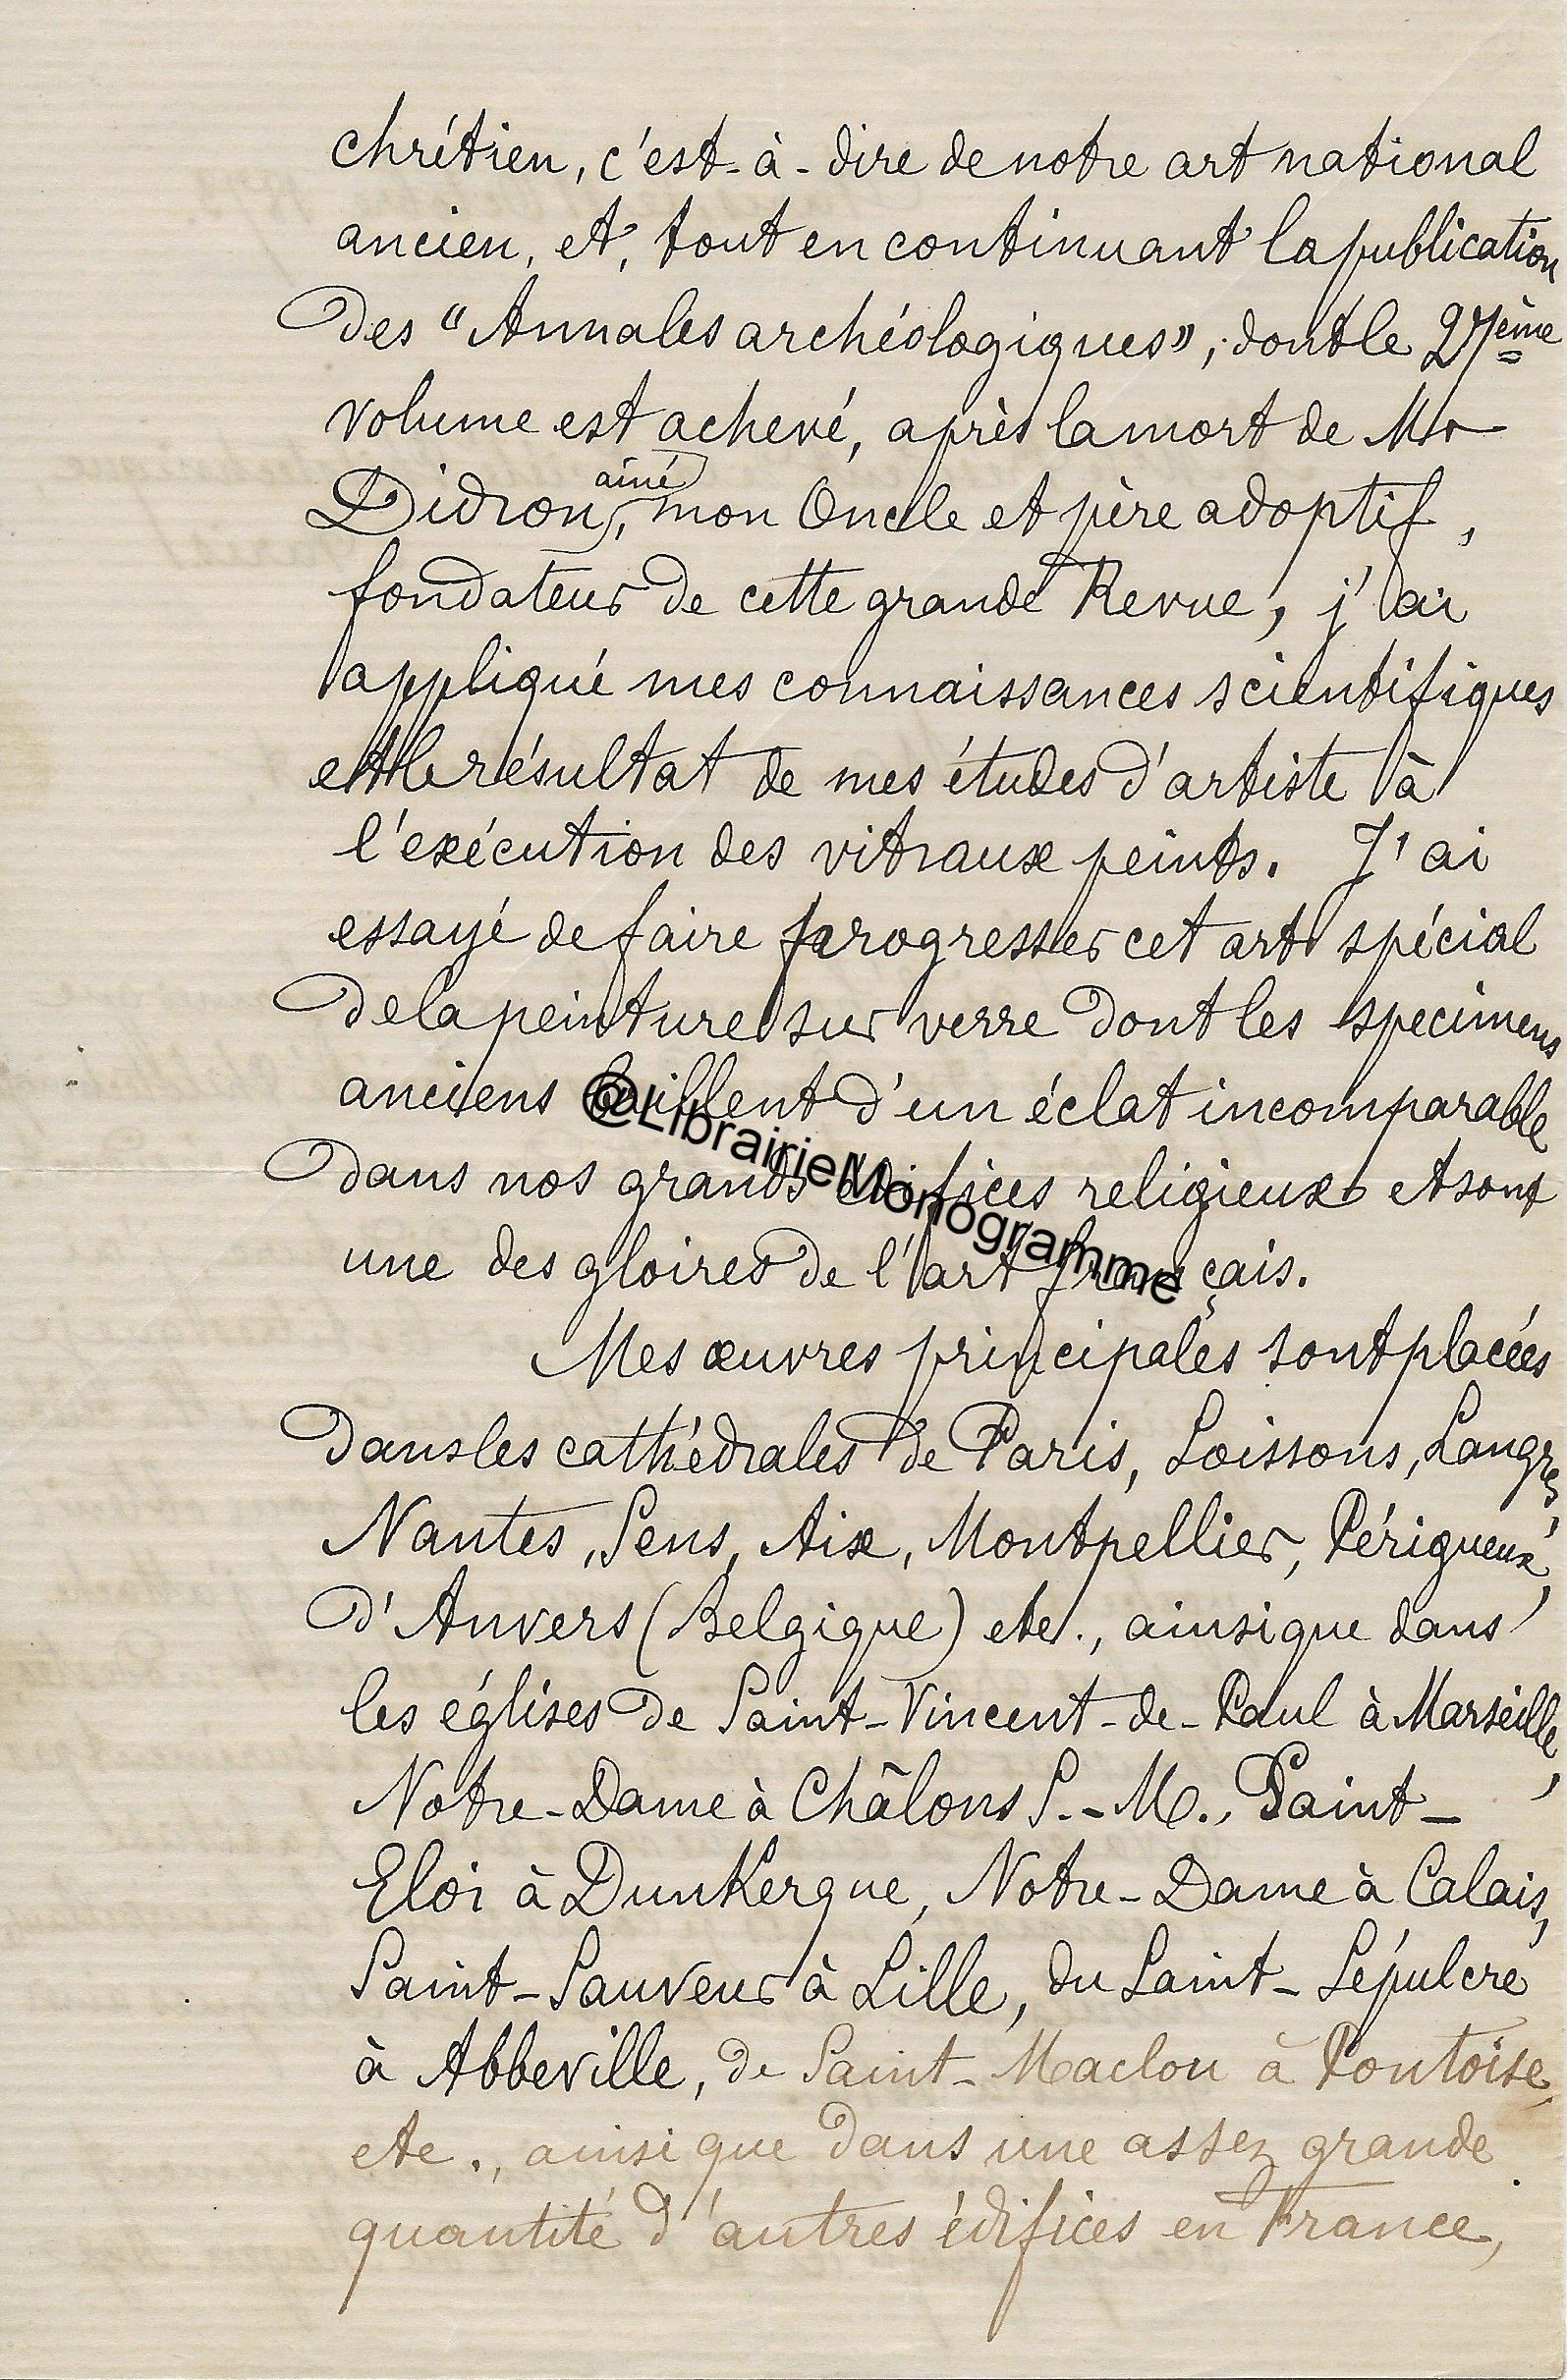 chrétien, c'est-à-dire de notre art national
ancien, et, tout en continuant la publication
des "Annales archéologiques", dont le 27ème
volume est achevé, après la mort de Mr
Didron ainé, mon Oncle et père adoptif,
fondateur de cette grande Revue, j'ai
appliqué mes connaissances scientifiques
et le résultat de mes études d'artiste à
l'exécution des vitraux peints. J'ai
essayé de faire progresser cet art spécial
de la peinture sur verre dont les specimens
anciens brillent d'un éclat incomparable
dans nos grands édifices religieux et sont
une des gloires de l'art français.
Mes œuvres principales sont placées
dans les cathédrales de Paris, Soissons, Langres,
Nantes, Sens, Aix, Montpellier, Périgueux,
d'Anvers (Belgique) etc., ainsi que dans
les églises de Saint-Vincent-de-Paul à Marseille,
Notre-Dame à Châlons S.-M., Saint-
Eloi à Dunkerque, Notre-Dame à Calais,
Saint-Sauveur à Lille, du Saint-Sépulcre
à Abbeville, de Saint-Maclou à Pontoise,
etc., ainsi que dans une assez grande
quantité d'autres édifices en France,
@LibrairieMonogramme